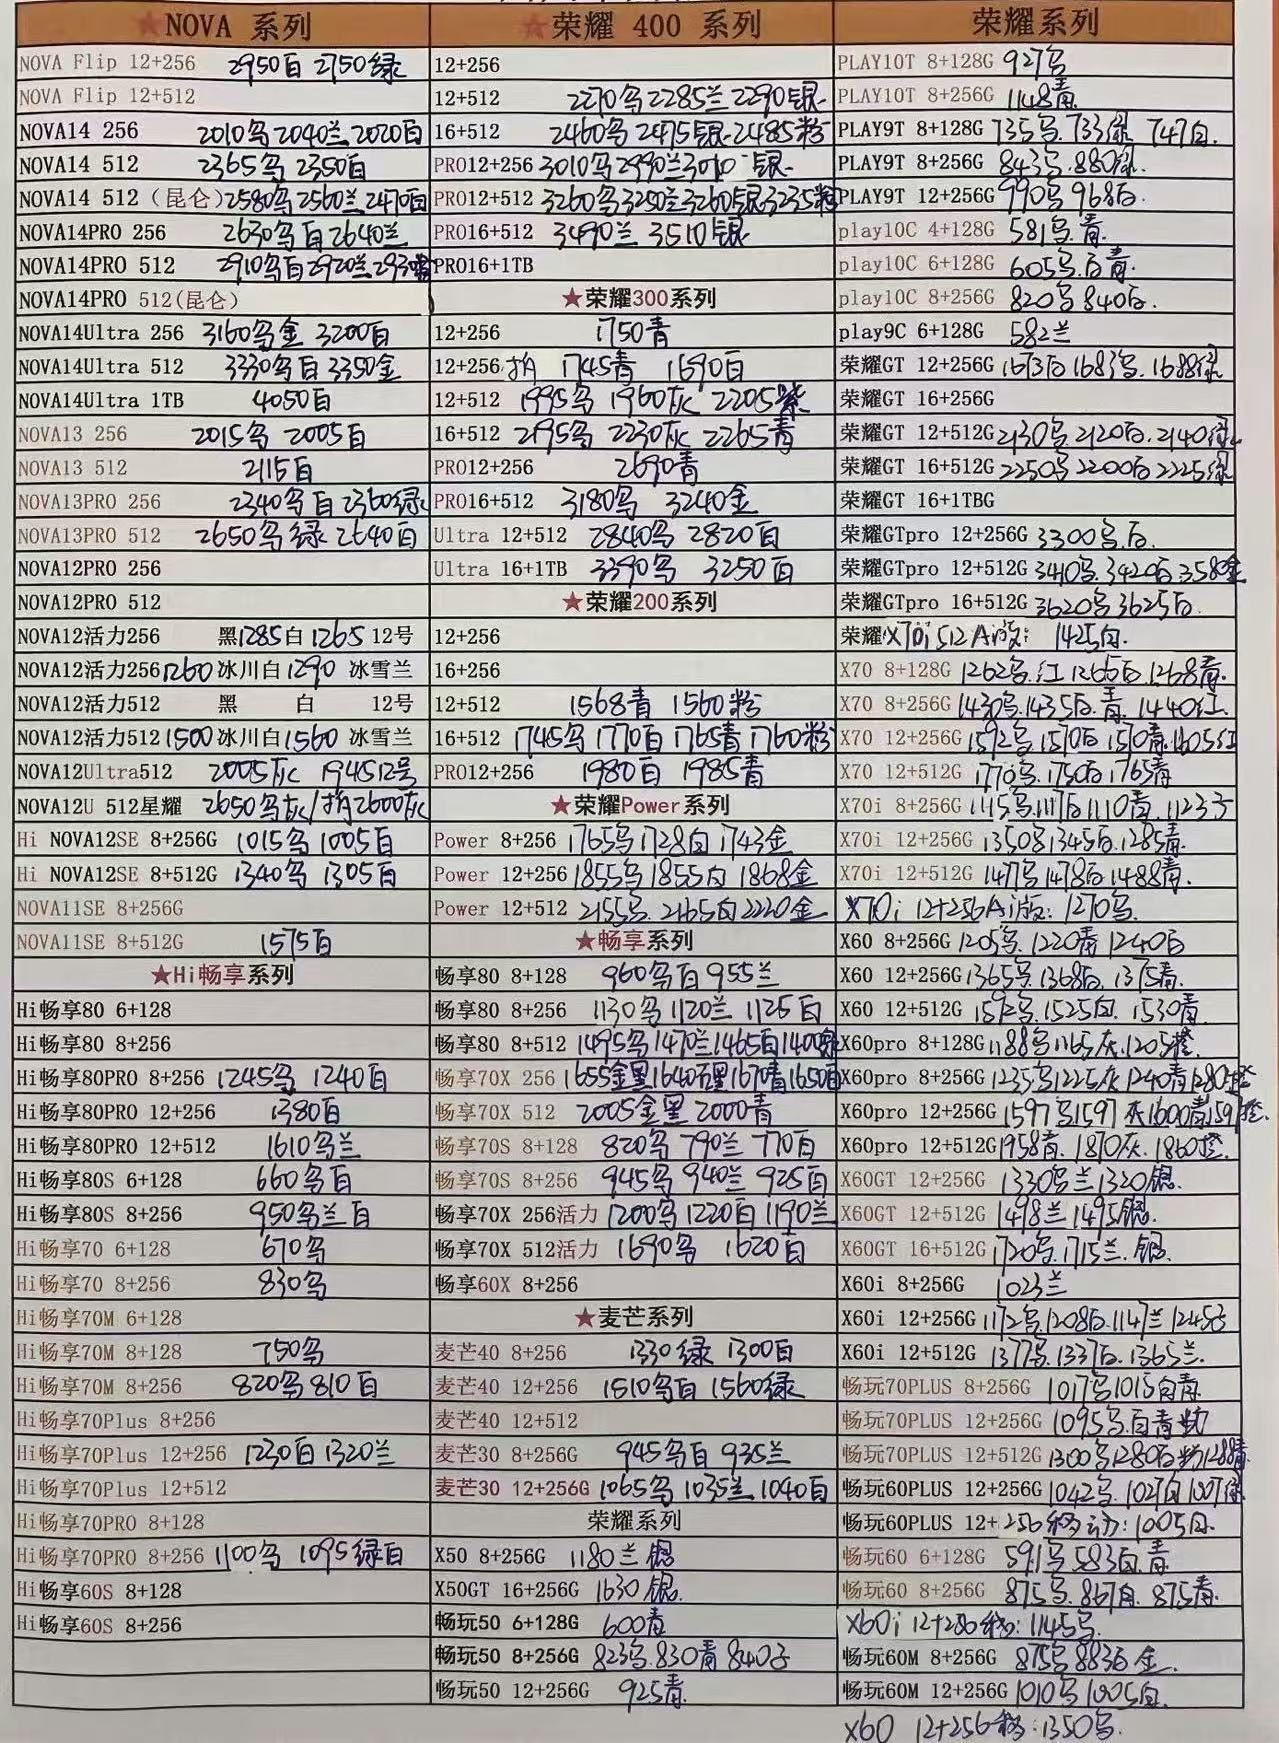 ★NOVA 系列
NOVA Flip 12+256 2950白 2750绿
NOVA Flip 12+512
NOVA14 256 2010乌 2040兰 2020白
NOVA14 512 2365乌 2350白
NOVA14 512（昆仑）2580乌 2560兰 2470白
NOVA14PRO 256 2630乌白 2640兰
NOVA14PRO 512 2910乌白 2920兰
NOVA14PRO 512(昆仑)
NOVA14Ultra 256 3160乌金 3200白
NOVA14Ultra 512 3330乌白 3350金
NOVA14Ultra 1TB 4050白
NOVA13 256 2015乌 2005白
NOVA13 512 2115白
NOVA13PRO 256 2340乌白 2360绿
NOVA13PRO 512 2650乌绿 2640白
NOVA12PRO 256
NOVA12PRO 512
NOVA12活力256 黑1285白1265 12号
NOVA12活力256 1260冰川白1290 冰雪兰
NOVA12活力512 黑 白 12号
NOVA12活力512 1500冰川白1560 冰雪兰
NOVA12Ultra512 2005灰 1945 12号
NOVA12U 512星耀 2650乌灰/拆2600灰
Hi NOVA12SE 8+256G 1015乌 1005白
Hi NOVA12SE 8+512G 1340乌 1305白
NOVA11SE 8+256G
NOVA11SE 8+512G 1575白
★Hi畅享系列
Hi畅享80 6+128
Hi畅享80 8+256
Hi畅享80PRO 8+256 1245乌 1240白
Hi畅享80PRO 12+256 1380白
Hi畅享80PRO 12+512 1610乌兰
Hi畅享80S 6+128 660乌白
Hi畅享80S 8+256 950乌兰白
Hi畅享70 6+128 670乌
Hi畅享70 8+256 830乌
Hi畅享70M 6+128
Hi畅享70M 8+128 750乌
Hi畅享70M 8+256 820乌 810白
Hi畅享70Plus 8+256
Hi畅享70Plus 12+256 1230白 1320兰
Hi畅享70Plus 12+512
Hi畅享70PRO 8+128
Hi畅享70PRO 8+256 1100乌 1095绿白
Hi畅享60S 8+128
Hi畅享60S 8+256
★荣耀 400 系列
12+256
12+512 2270乌 2285兰 2290银
16+512 2460乌 2475银 2485粉
PRO12+256 3010乌 2990兰 3010银
PRO12+512 3260乌 3250兰 3260银 3235粉
PRO16+512 3490兰 3510银
PRO16+1TB
★荣耀300系列
12+256 1750青
12+256拆 1745青 1690白
12+512 1995乌 1960灰 2205紫
16+512 2195乌 2230灰 2265青
PRO12+256 2690青
PRO16+512 3180乌 3240金
Ultra 12+512 2840乌 2820白
Ultra 16+1TB 3390乌 3250白
★荣耀200系列
12+256
16+256
12+512 1568青 1560粉
16+512 1745乌 1770白 1765青 1760粉
PRO12+256 1980白 1985青
★荣耀Power系列
Power 8+256 1765乌 1728白 1743金
Power 12+256 1855乌 1855白 1868金
Power 12+512 2155乌. 2165白 2220金
★畅享系列
畅享80 8+128 960乌白 955兰
畅享80 8+256 1130乌 1120兰 1125白
畅享80 8+512 1495乌 1470兰 1465白
畅享70X 256 1655金黑 1670青 1650白
畅享70X 512 2005金黑 2000青
畅享70S 8+128 820乌 790兰 770白
畅享70S 8+256 945乌 940兰 925白
畅享70X 256活力 1200乌 1220白 1190兰
畅享70X 512活力 1690乌 1620白
畅享60X 8+256
★麦芒系列
麦芒40 8+256 1330绿 1300白
麦芒40 12+256 1510乌白 1560绿
麦芒40 12+512
麦芒30 8+256G 945乌白 935兰
麦芒30 12+256G 1065乌 1035兰 1040白
荣耀系列
X50 8+256G 1180兰 银
X50GT 16+256G 1630银.
畅玩50 6+128G 600青
畅玩50 8+256G 823乌.830青 840
畅玩50 12+256G 925青.
荣耀系列
PLAY10T 8+128G 927乌
PLAY10T 8+256G 1148青.
PLAY9T 8+128G 735乌.733绿 747白.
PLAY9T 8+256G 843乌.880绿.
PLAY9T 12+256G 990乌 968白.
play10C 4+128G 581乌.青.
play10C 6+128G 605乌.白青.
play10C 8+256G 820乌 840白.
play9C 6+128G 582兰
荣耀GT 12+256G 1673白 1683乌.1688绿
荣耀GT 16+256G
荣耀GT 12+512G 2130乌.2120白.2140绿
荣耀GT 16+512G 2250乌 2200白 2225绿
荣耀GT 16+1TBG
荣耀GTpro 12+256G 3300乌.白.
荣耀GTpro 12+512G 3410乌.3420白.3580金
荣耀GTpro 16+512G 3620乌 3625白.
荣耀X70i 512 A版: 1425白.
X70 8+128G 1262乌.红 1266白.1268青.
X70 8+256G 1430乌.1435白.青.1440红.
X70 12+256G 1592乌.1570白.1570青.1605红
X70 12+512G 1770乌.1750白.1765青
X70i 8+256G 1115乌.1117白 1110青.1123
X70i 12+256G 1350乌 1345白.1285青.
X70i 12+512G 1477乌 1478白 1488青.
X70i 12+256A版: 1270乌.
X60 8+256G 1205乌.1220青 1240白
X60 12+256G 1365乌.1368白.1375青.
X60 12+512G 1592乌.1525白.1530青
X60pro 8+128G 1188乌 1165灰.1205橙.
X60pro 8+256G 1235乌 1225灰 1240青 1280橙
X60pro 12+256G 1597乌 1597灰 1600青 1597橙.
X60pro 12+512G 1958青.1870灰.1860橙.
X60GT 12+256G 1330乌兰 1320银.
X60GT 12+512G 1498兰 1495银.
X60GT 16+512G 1720乌.1715兰.银.
X60i 8+256G 1023兰
X60i 12+256G 1172乌.1208白.1147兰 1245
X60i 12+512G 1377乌.1337白.1365兰.
畅玩70PLUS 8+256G 1017乌 1015白青.
畅玩70PLUS 12+256G 1095乌.白青
畅玩70PLUS 12+512G 1300乌 1280白粉 1288青
畅玩60PLUS 12+256G 1042乌.1027白 1007绿
畅玩60PLUS 12+256移动: 1005白.
畅玩60 6+128G 591乌 583白.青
畅玩60 8+256G 875乌.867白.875青.
X60i 12+256移: 1145乌.
畅玩60M 8+256G 875乌 883白 金.
畅玩60M 12+256G 1010乌 1005白.
X60 12+256移: 1350乌.